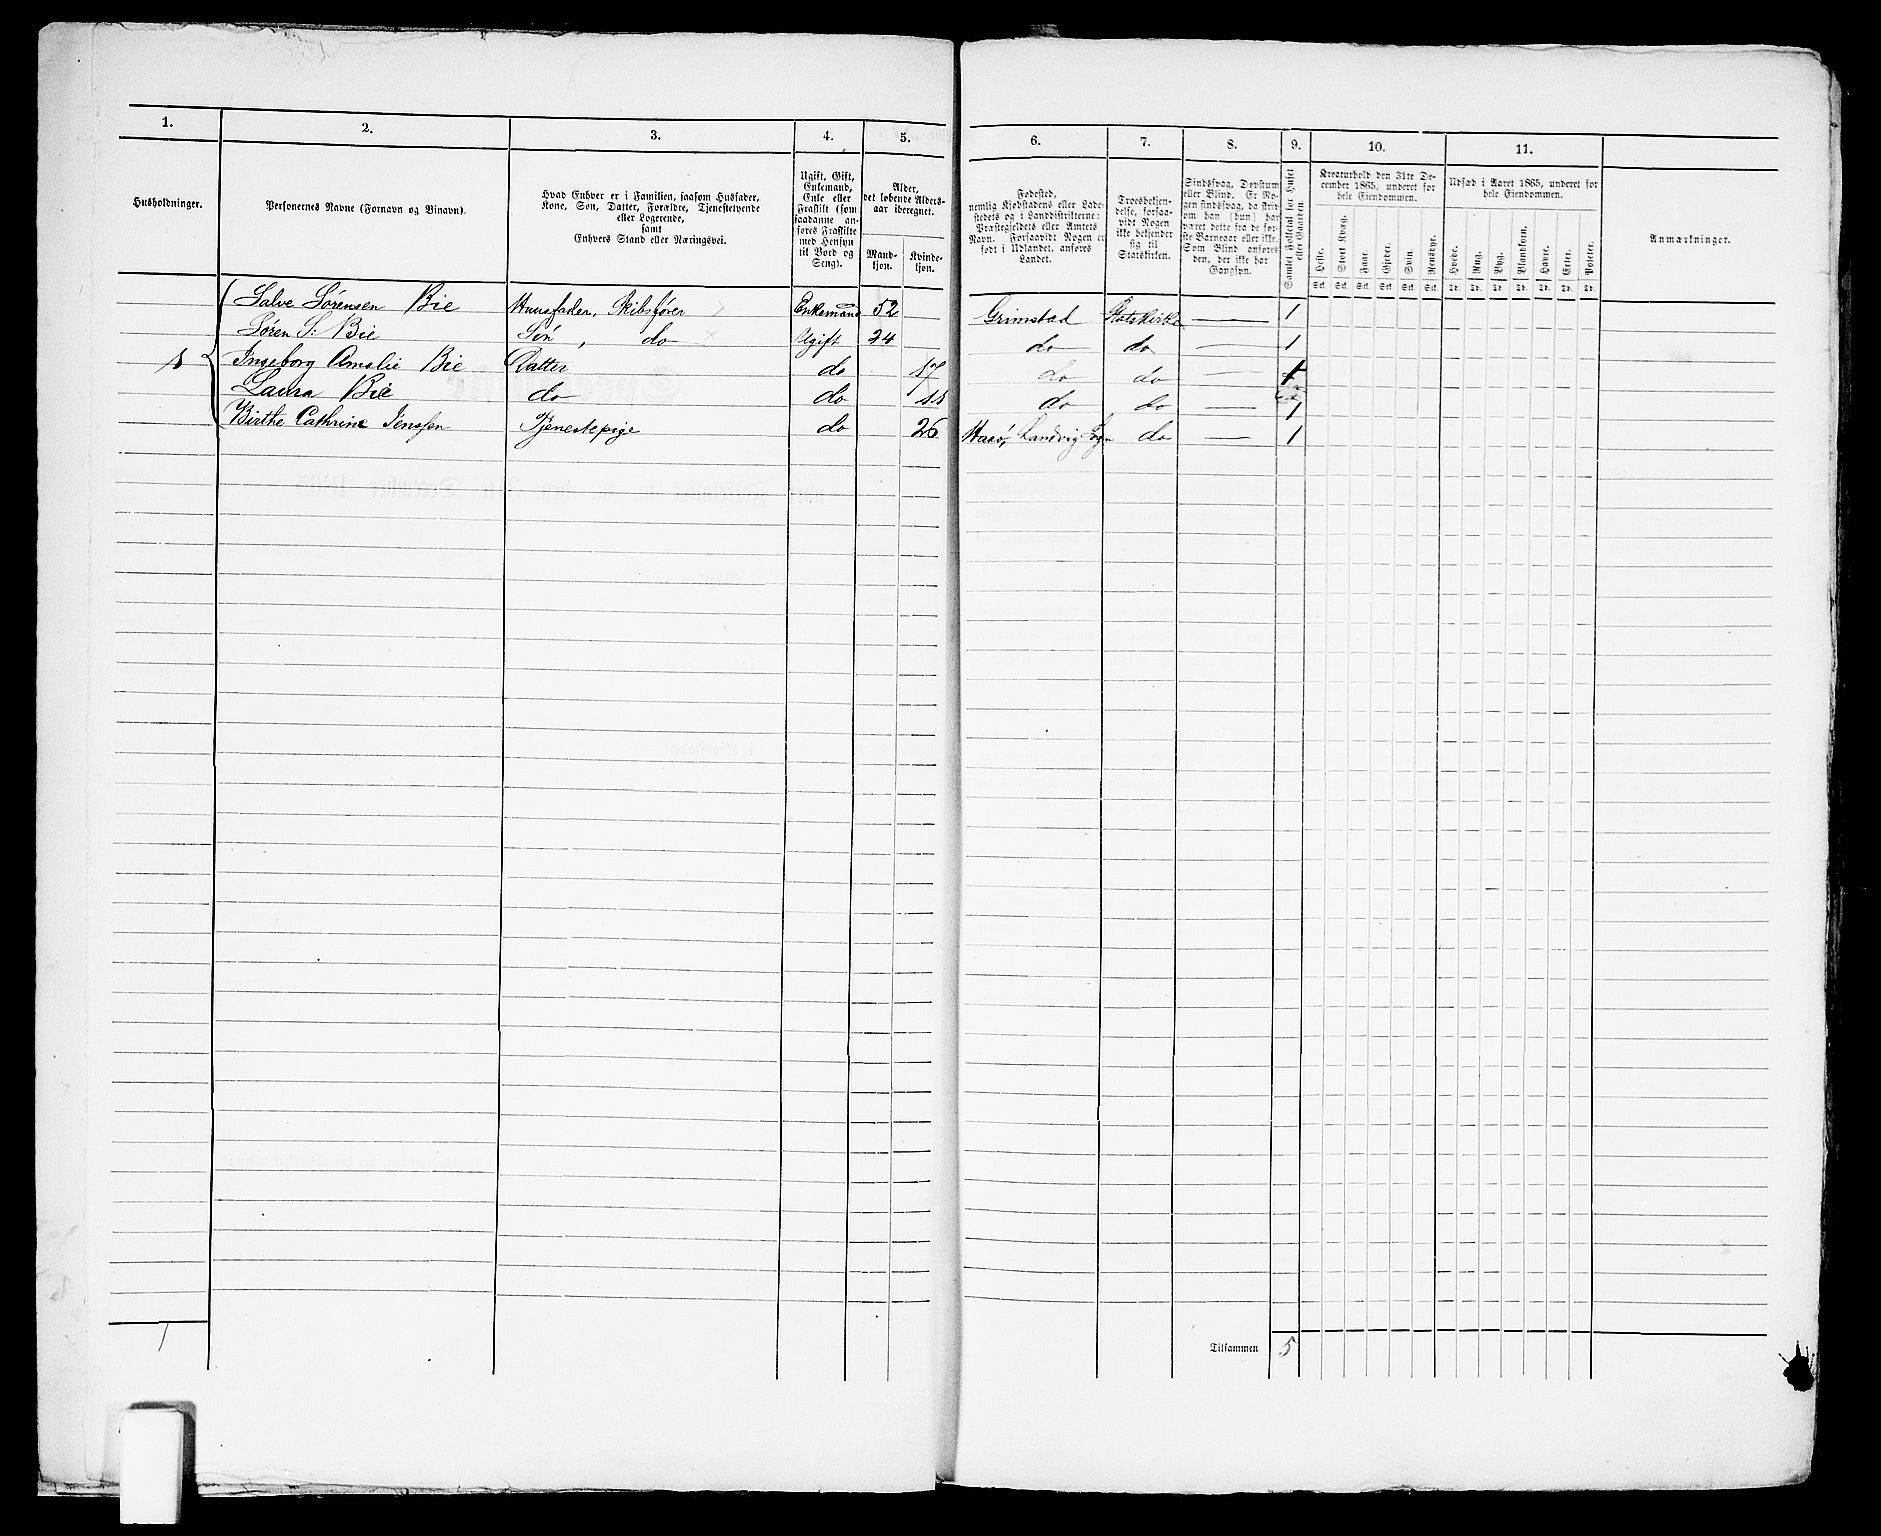 1. 2. 3. 4. 5. 6. 7. 8. 9. 10. 11.
Husholdninger.
Personernes Navne (Fornavn og Binavn).
Hvad Enhver er i Familien, saasom Husfader,
Kone, Søn, Datter, Forældre, Tjenestetyende
eller Logerende,
samt
Enhvers Stand eller Næringsvei.
Ugift, Gift,
Enkemand,
Enke eller
Fraskilt (som
saadanne an-
føres Fraskilte
med Hensyn
til Bord og
Seng).
Alder,
det løbende Alders-
aar iberegnet.
Mand-
kjøn.
Kvinde-
kjøn.
Fødested,
nemlig Kjøbstadens eller Lade-
stedets og i Landdistrikterne:
Præstegjeldets eller Amtets
Navn. Forsaavidt Nogen er
født i Udlandet, anføres
Landet.
Troesbekjen-
delse, forsaa-
vidt Nogen
ikke bekjender
sig til
Statskirken.
Sindssvag, Døvstum
eller Blind. Er No-
gen sindssvag, da skrives
om han (hun) har
været dette fra de før-
ste Barneaar eller ikke.
Som Blind anføres
den, der ikke har
Gangsyn.
Samlet Folketal for Huset
eller Gaarden.
Kreaturhold den 31te De-
cember 1865, underet for
hele Eiendommen.
Heste. Stort Kvæg. Faar. Gjeder. Svin. Rensdyr.
Udsæd i Aaret 1865, underet for
hele Eiendommen.
Hvede. Rug. Byg. Blandkorn. Havre. Erter. Poteter.
Anmærkninger.
Salve Sørensen Bie Huusfader, Skibsfører Enkemand 52 Grimstad Statskirken 1
Søren S: Bie Søn, do Ugift 24 do do 1
1 Ingeborg Amalie Bie Datter do 17 do do 1
Laura Bie do do do do 1
Birthe Cathrine Jenssen Tjenestepige do 26 Landvig Sogn do 1
1
Tilsammen 5